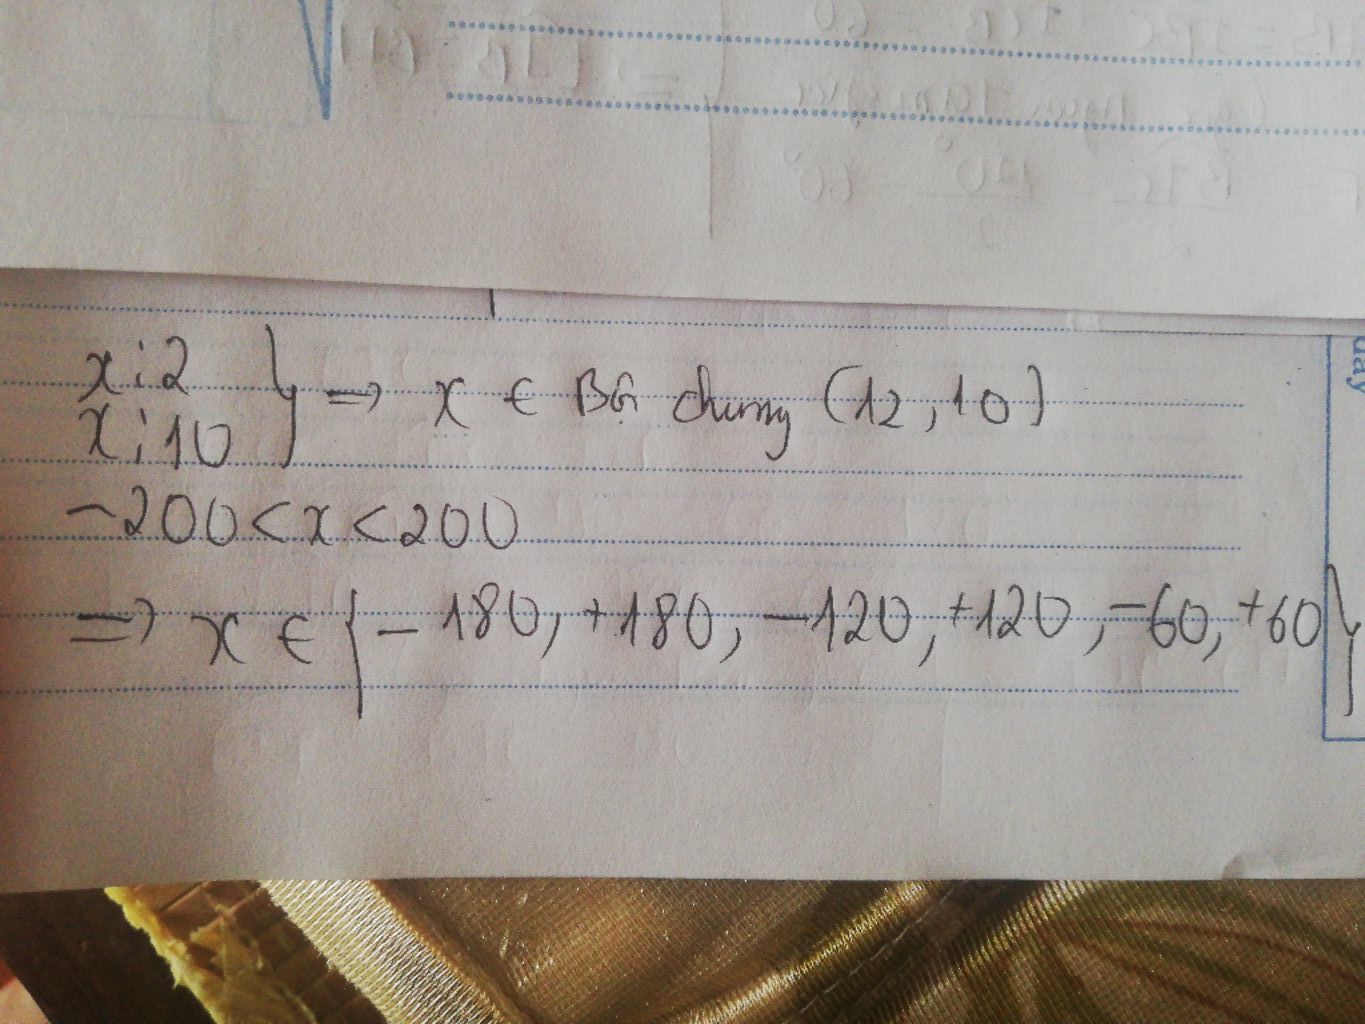 x⋮2
x⋮10 } => x ∈ BC chung (12, 10)
-200 < x < 200
=> x ∈ { - 180, +180, -120, +120, -60, +60 }
day